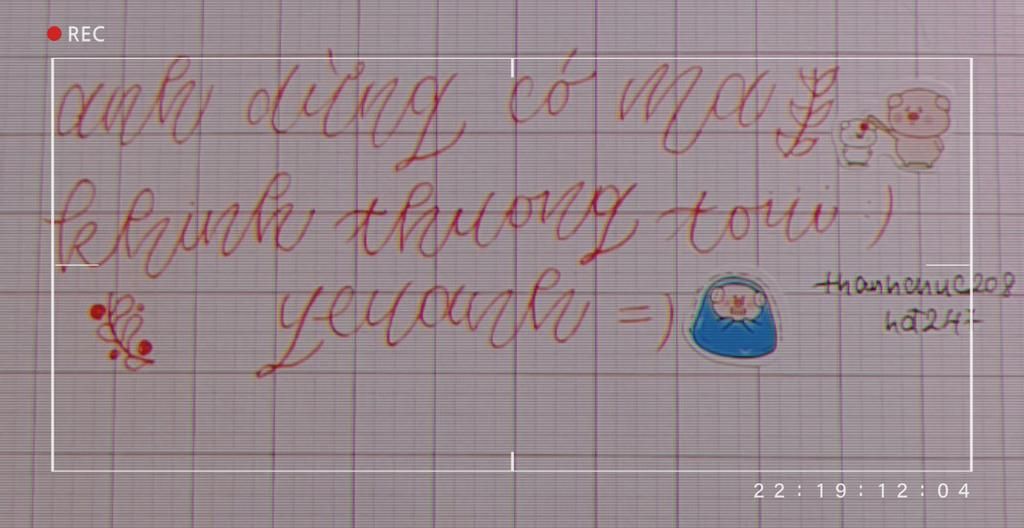 REC
anh dừng có ma
khinh thuong toiii :)
yeuanh =)
thanhchuc208
hot247
22:19:12:04